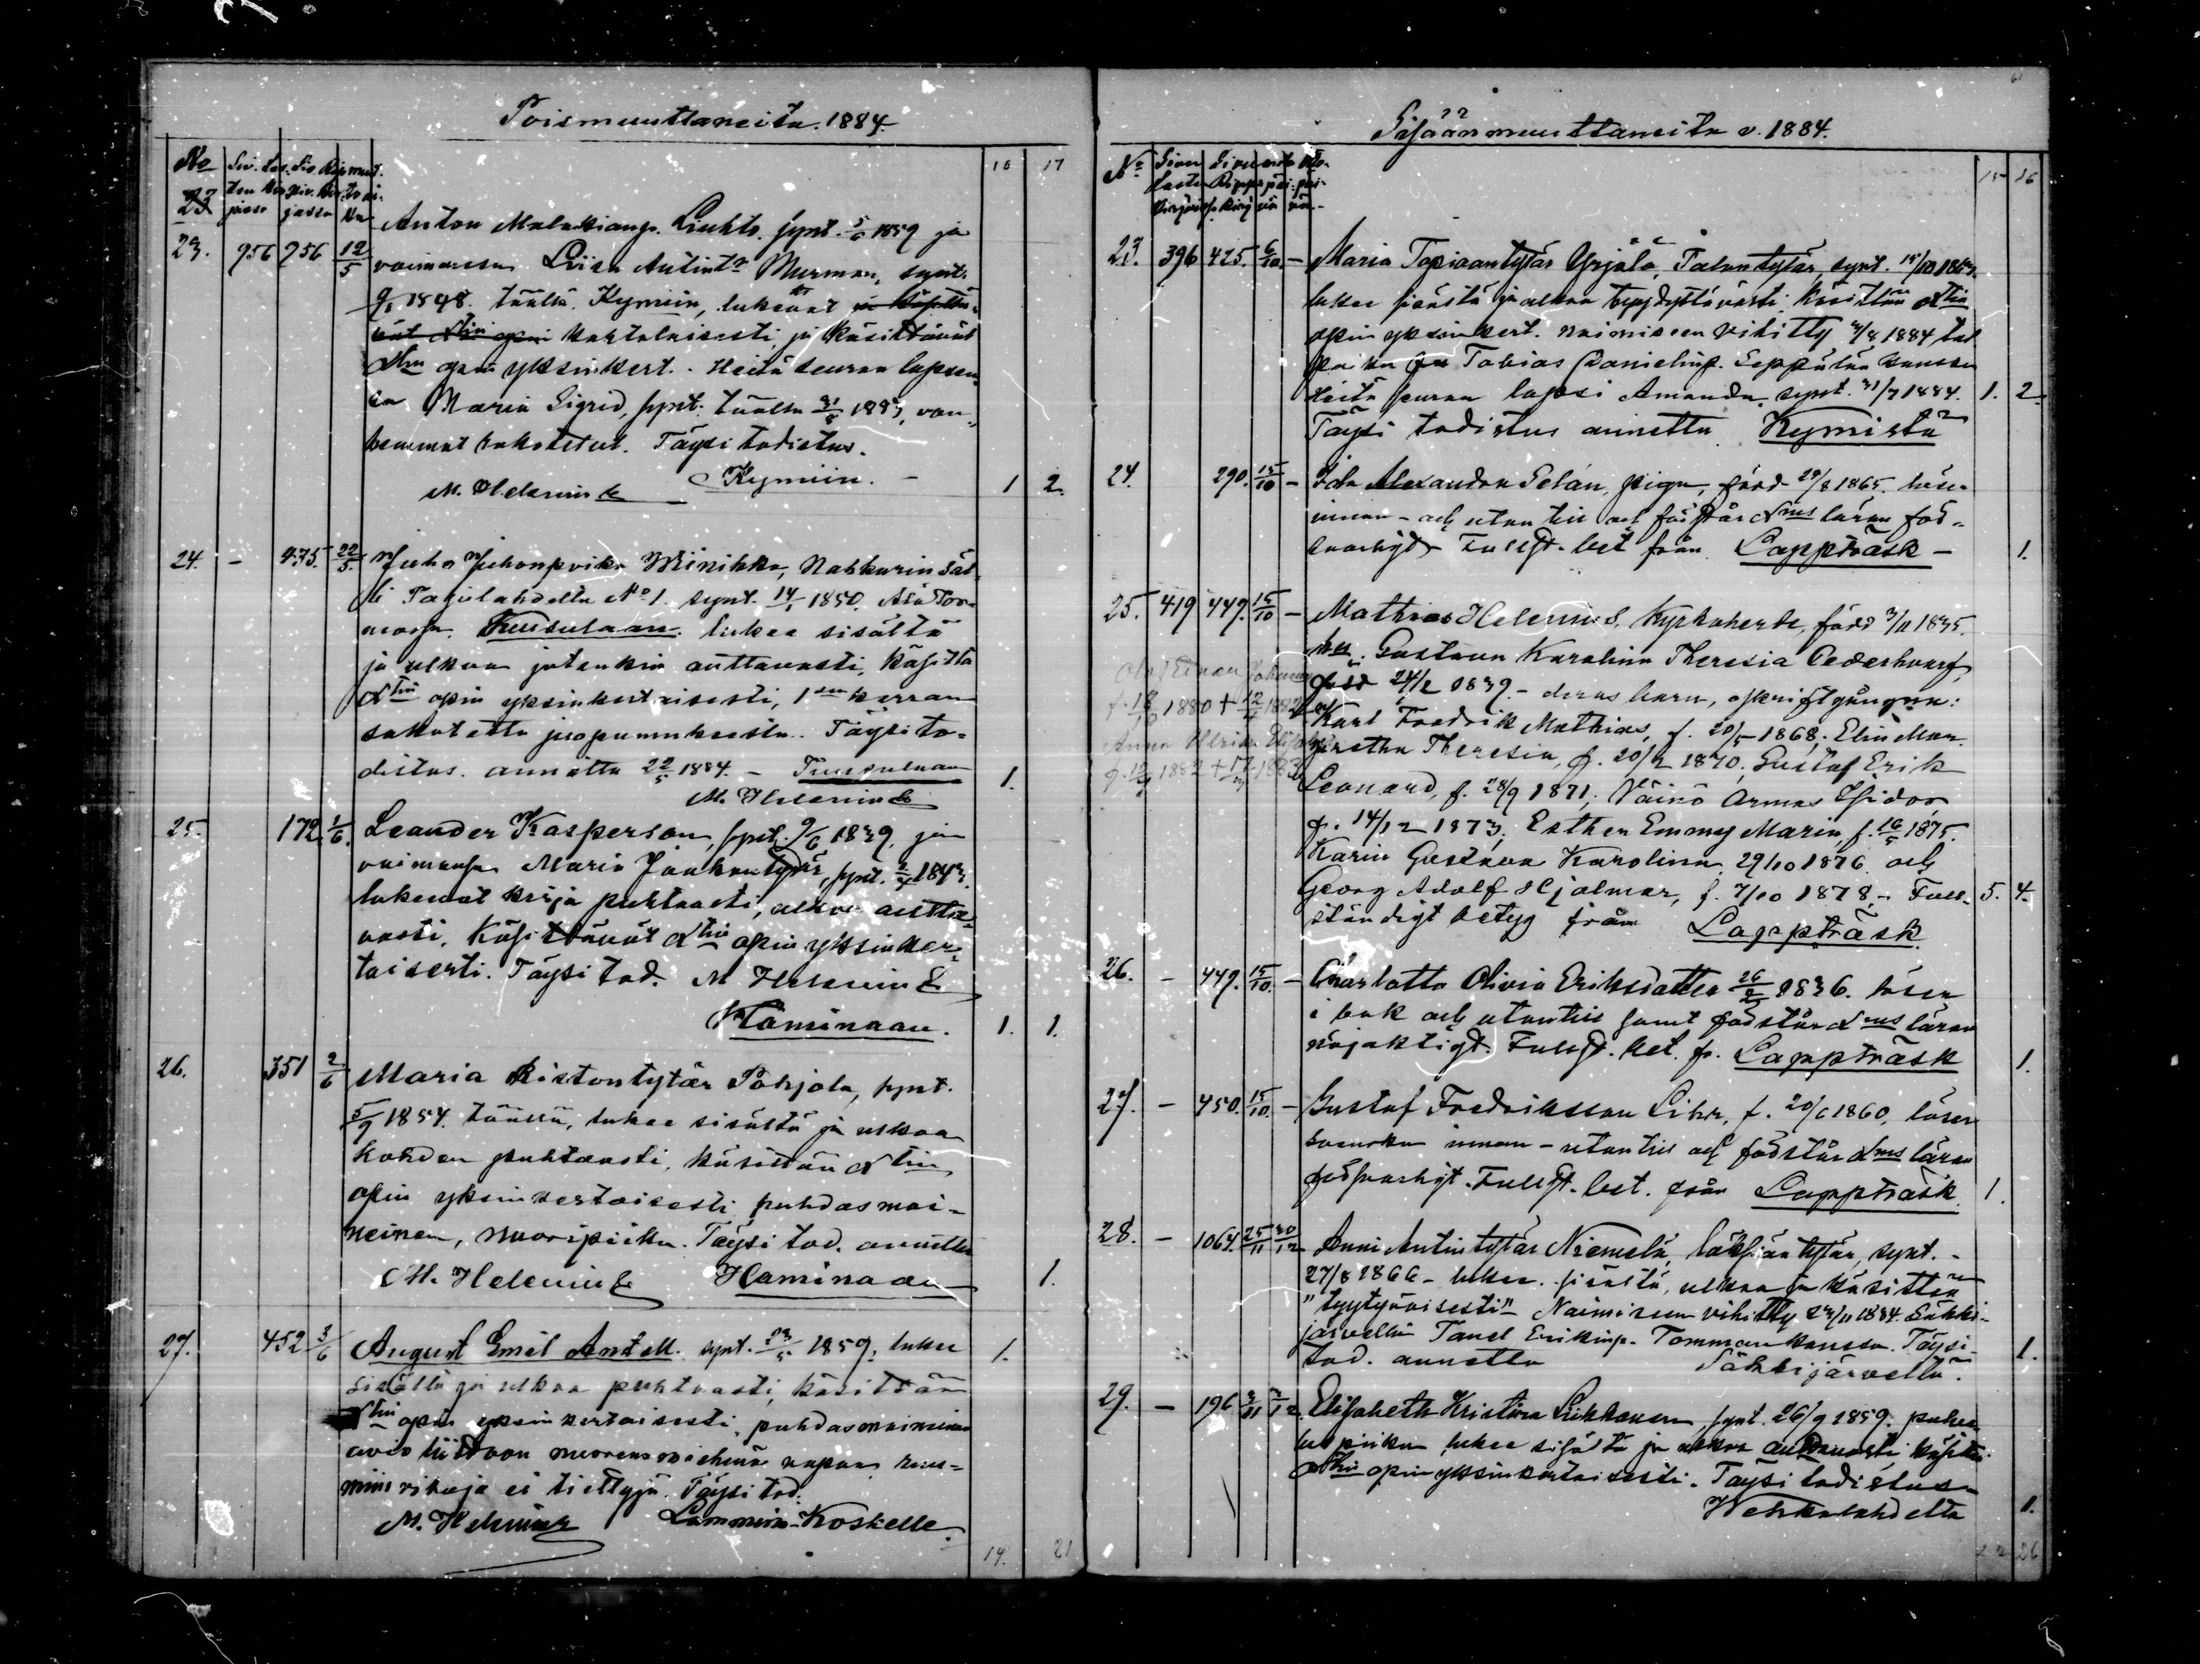 Poismuuttaneita. 1884.
No
16 17
23
Anton Malakianp. Liukko. synt. 5/6 1859 ja
23. 956 956 12/5 vaimonsa Liisa Antint. Murman, synt.
1848. täällä. Kymiin, lukevat
opin kohtalaisesti, ja käsittävät
opin yksinkert. - Heitä seuraa lapsen
sa Maria Sigrid, synt. täällä 31/5 1883, van-
hemmat rokotetut. Täysi todistus.
M. Helenius Kymiin. - 1 2.
24. - 475. 22/5. Juho Juhonpoika Minikka, Nahkurin säl-
li Tavilahdelta No 1. synt. 14/1 1850.
Tuusulaan. lukee sisältä
ja ulkoa jotenkin auttavasti, käsittä
opin yksinkertaisesti, 1sen kerran
sakotettu juopumuksesta. Täysi to-
distus. annettu 22/5 1884. - Tuusulaan 1.
M. Helenius
25. 172. 1/6. Leander Kasperson, synt. 9/6 1839, ja
vaimonsa Maria Jaakontytär, synt. 2/4 1843.
lukevat kirja puhtaasti, ulkoa autta-
vasti, Käsittävät opin yksinker-
taisesti. Täysi tod. M Helenius
Haminaan. 1. 1.
26. 351 2/6 Maria Ristontytär Pohjola, synt.
5/9 1854. täällä, lukee sisältä ja ulkoa
kohden puhtaasti, käsittää
opin yksinkertaisesti puhdasmai-
neinen, nuoripiika. Täysi tod. annettu
M. Helenius Haminaan 1.
27. 452 3/6 August Emil Antell. synt. 23/5 1859, lukee 1.
sisältä ja ulkoa puhtaasti, käsittää
opin yksinkertaisesti, puhdasmaineinen
avio liittoon nuorenamiehenä vapaa, ruu-
miin vikoja ei tiettyjä. Täysi tod.
M. Helenius Lammin-Koskelle.
14. 21
Sisäänmuuttaneita v. 1884.
No
15 16
23. 396 425. 6/10. - Maria Tapiaantytär Yrjölä, Talontytär, synt. 15/10
lukee sisästä ja ulkoa tyydyttävästi. Käsittää
opin yksinkert. naimiseen vihitty 3/8 1884 tal
pojan Tobias Danielinp. Seppälän kanssa
Heitä seuraa lapsi Amanda, synt. 31/7 1884. 1. 2.
Täysi todistus annettu Kymistä
24. 290. 15/10 - Ida Alexandra Selán, piga, född 29/8 1865. läser
innan- och utantill och förstår läran för-
svarligt - Fullst. bet från Lappträsk - 1.
25. 419 449. 15/10 - Mathias Helenius, Kyrkoherde, född 3/11 1835.
hu. Gustava Karolina Theresia Cederhvarf,
född 24/2 1839. - deras barn, oskriftgångna:
Karl Fredrik Mathias, f. 20/5 1868, Elin Mar-
gretha Theresia, f. 20/2 1870, Gustaf Erik
Leonard, f. 28/9 1871, Väinö Armas Isidor
f. 14/12 1873, Esther Emmy Maria, f. 16/5 1875.
Karin Gustava Karolina 29/10 1876 och
Georg Adolf Hjalmar, f. 7/10 1878. - Full- 5. 4.
ständigt betyg från Lappträsk
Johannes
f. 18/10 1880 + 12/4 1882
Anna Ulrika
1882 + 1883
26. - 449. 15/10. - Charlotta Olivia Eriksdotter 26/2 1836. läser
i bok och utantill samt förstår läran
nöjaktigt. Fullst. bet. fr. Lappträsk 1.
27. - 450 15/10. - Gustaf Fredriksson Lihr, f. 20/6 1860, läser
svenska innan - utantill och förstår läran
försvarligt. Fullst. bet. från Lappträsk 1.
28. - 1064. 25/11 30/12 Anni Antintytär Niemelä, synt. -
27/8 1866 - lukee sisältä, ulkoa ja käsittää
"tyytyväisesti" Naimiseen vihitty 23/11 1884. Säkki-
järvellä Tanel Erikinp. Tomman kanssa. Täysi
tod. annettu Säkkijärveltä. 1.
29. - 196 3/11 2/12 Elisabeth Kristina Liikkanen, synt. 26/9 1859.
piika lukee sisältä ja ulkoa auttavasti, käsittää
opin yksinkertaisesti. Täysi todistus
Wehkalahdelta 1.
26